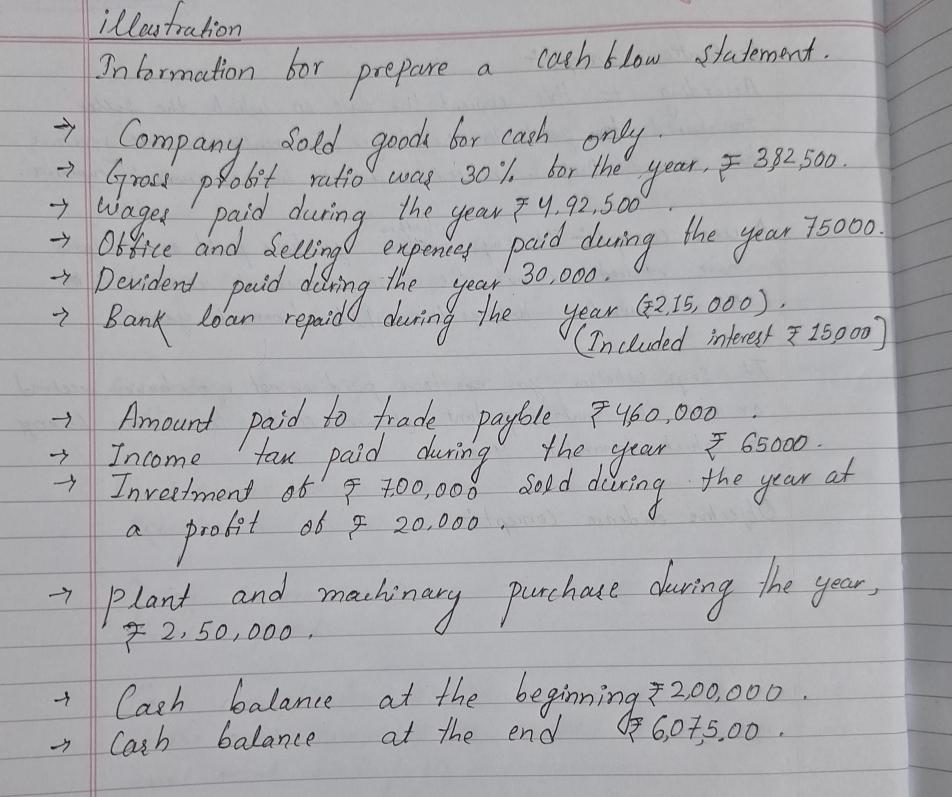 illustration
Information for prepare a cash flow statement.
→ Company Sold goods for cash only.
→ Gross profit ratio was 30% for the year, ₹ 382,500.
→ Wages paid during the year ₹ 4,92,500
→ Office and Selling expences paid during the year 75000.
→ Devident paid during the year 30,000.
→ Bank loan repaid during the year (₹2,15,000).
(Included interest ₹ 15000)
→ Amount paid to trade payble ₹ 460,000.
→ Income tax paid during the year ₹ 65000.
→ Investment of ₹ 700,000 Sold during the year at
a profit of ₹ 20,000.
→ Plant and machinary purchase during the year,
₹ 2,50,000.
→ Cash balance at the beginning ₹ 200,000.
→ Cash balance at the end ₹ 6,075,00.